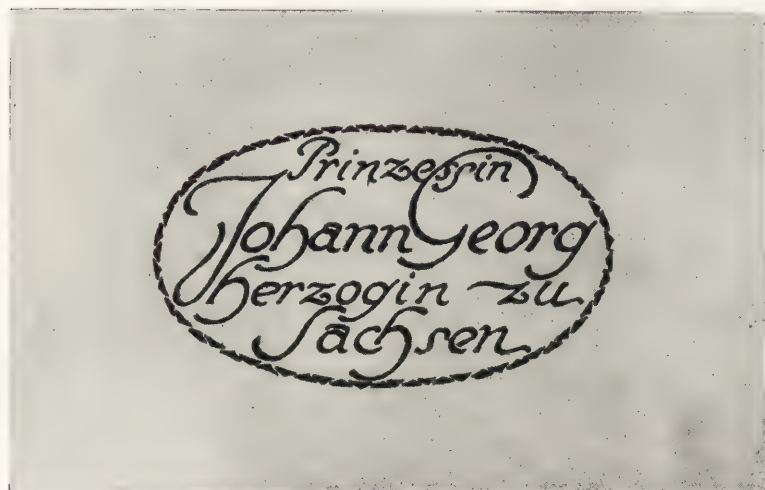 Prinzessin
Johann Georg
Herzogin zu
Sachsen